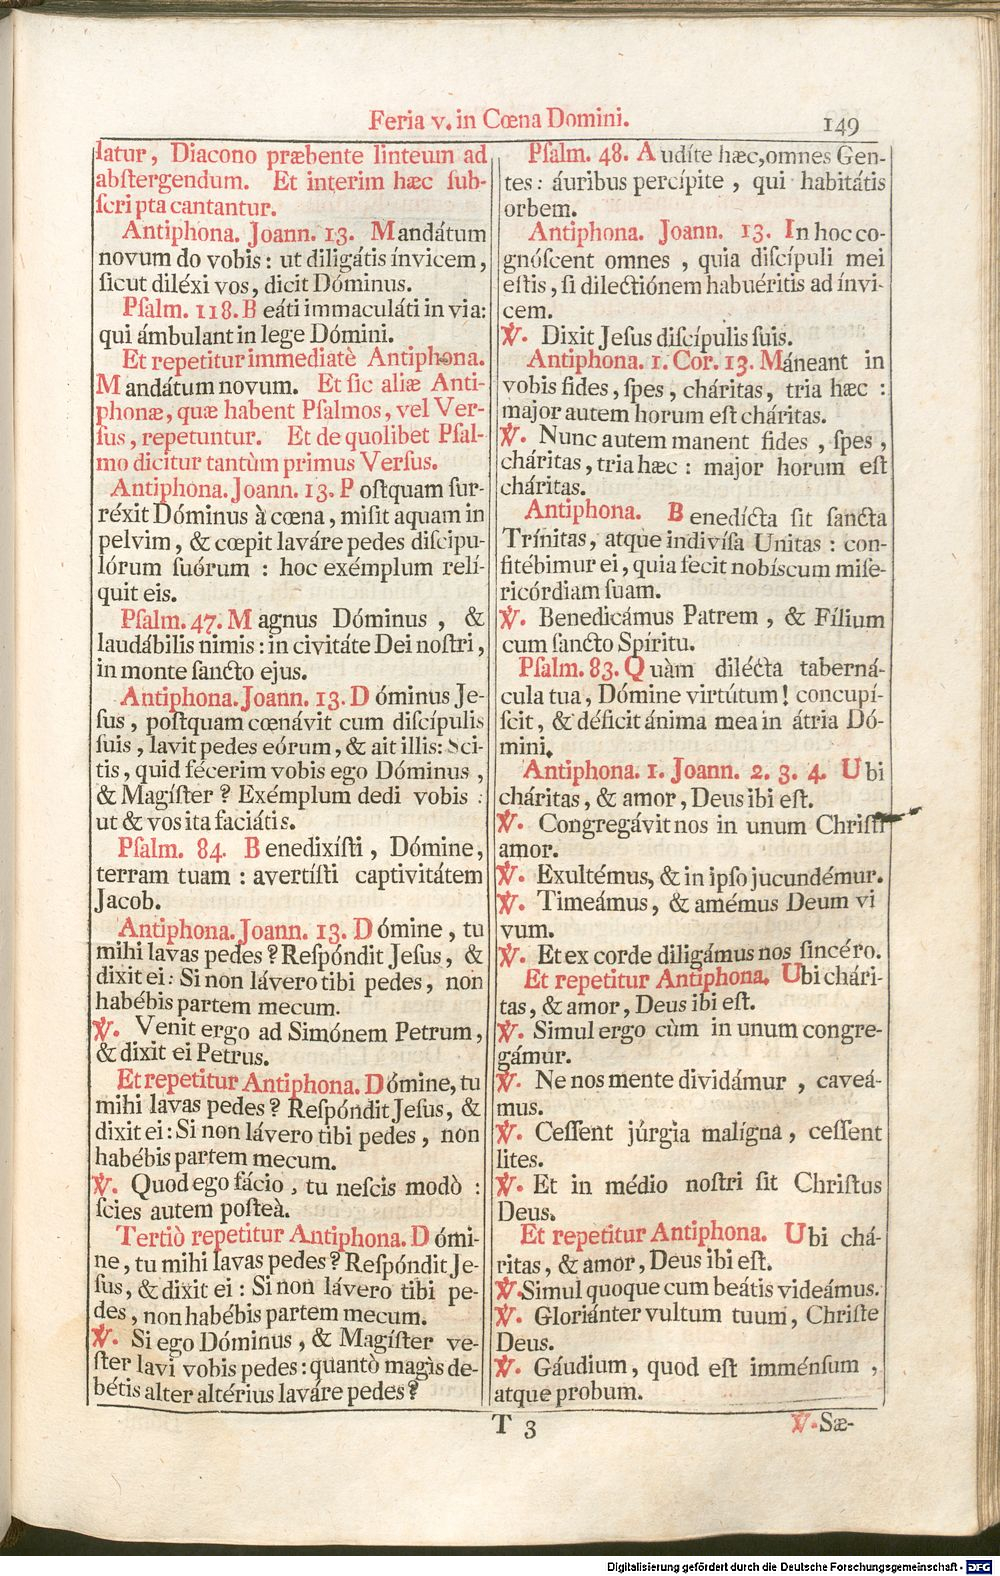 Feria v. in Cœna Domini.
149
latur, Diacono præbente linteum ad
abſtergendum. Et interim hæc ſub-
ſcripta cantantur.
Antiphona. Joann. 13. Mandátum
novum do vobis: ut diligátis ínvicem,
ſicut diléxi vos, dicit Dóminus.
Pſalm. 118. Beáti immaculáti in via:
qui ámbulant in lege Dómini.
Et repetitur immediatè Antiphona.
Mandátum novum. Et ſic aliæ Anti-
phonæ, quæ habent Pſalmos, vel Ver-
ſus, repetuntur. Et de quolibet Pſal-
mo dicitur tantùm primus Verſus.
Antiphona. Joann. 13. Poſtquam ſur-
réxit Dóminus à cœna, miſit aquam in
pelvim, & cœpit laváre pedes diſcipu-
lórum ſuórum : hoc exémplum relí-
quit eis.
Pſalm. 47. Magnus Dóminus, &
laudábilis nimis: in civitáte Dei noſtri,
in monte ſancto ejus.
Antiphona. Joann. 13. Dóminus Je-
ſus, poſtquam cœnávit cum diſcípulis
ſuis, lavit pedes eórum, & ait illis: Sci-
tis, quid fécerim vobis ego Dóminus,
& Magíſter? Exémplum dedi vobis :
ut & vos ita faciátis.
Pſalm. 84. Benedixíſti, Dómine,
terram tuam : avertíſti captivitátem
Jacob.
Antiphona. Joann. 13. Dómine, tu
mihi lavas pedes? Reſpóndit Jeſus, &
dixit ei: Si non lávero tibi pedes, non
habébis partem mecum.
℣. Venit ergo ad Simónem Petrum,
& dixit ei Petrus.
Et repetitur Antiphona. Dómine, tu
mihi lavas pedes? Reſpóndit Jeſus, &
dixit ei: Si non lávero tibi pedes, non
habébis partem mecum.
℣. Quod ego fácio, tu neſcis modò :
ſcies autem poſteà.
Tertiò repetitur Antiphona. Dómi-
ne, tu mihi lavas pedes? Reſpóndit Je-
ſus, & dixit ei : Si non lávero tibi pe-
des, non habébis partem mecum.
℣. Si ego Dóminus, & Magíſter ve-
ſter lavi vobis pedes: quantò magìs de-
bétis alter altérius laváre pedes?
Pſalm. 48. Audíte hæc, omnes Gen-
tes: áuribus percípite, qui habitátis
orbem.
Antiphona. Joann. 13. In hoc co-
gnóſcent omnes, quia diſcípuli mei
eſtis, ſi dilectiónem habuéritis ad ínvi-
cem.
℣. Dixit Jeſus diſcípulis ſuis.
Antiphona. 1. Cor. 13. Máneant in
vobis fides, ſpes, cháritas, tria hæc :
major autem horum eſt cháritas.
℣. Nunc autem manent fides, ſpes,
cháritas, tria hæc : major horum eſt
cháritas.
Antiphona. Benedícta ſit ſancta
Trínitas, atque indivíſa Unitas : con-
fitébimur ei, quia fecit nobíscum miſe-
ricórdiam ſuam.
℣. Benedicámus Patrem, & Fílium
cum ſancto Spíritu.
Pſalm. 83. Quàm diléćta taberná-
cula tua, Dómine virtútum! concupí-
ſcit, & déficit ánima mea in átria Dó-
mini.
Antiphona. 1. Joann. 2. 3. 4. Ubi
cháritas, & amor, Deus ibi eſt.
℣. Congregávit nos in unum Chriſti
amor.
℣. Exultémus, & in ipſo jucundémur.
℣. Timeámus, & amémus Deum vi
vum.
℣. Et ex corde diligámus nos ſincéro.
Et repetitur Antiphona. Ubi chári-
tas, & amor, Deus ibi eſt.
℣. Simul ergo cùm in unum congre-
gámur.
℣. Ne nos mente dividámur, caveá-
mus.
℣. Ceſſent júrgia malígna, ceſſent
lites.
℣. Et in médio noſtri ſit Chriſtus
Deus.
Et repetitur Antiphona. Ubi chá-
ritas, & amor, Deus ibi eſt.
℣. Simul quoque cum beátis videámus.
℣. Gloriánter vultum tuum, Chriſte
Deus.
℣. Gáudium, quod eſt imménſum,
atque probum.
T 3
℣. Sæ-
Digitalisierung gefördert durch die Deutsche Forschungsgemeinschaft - DFG